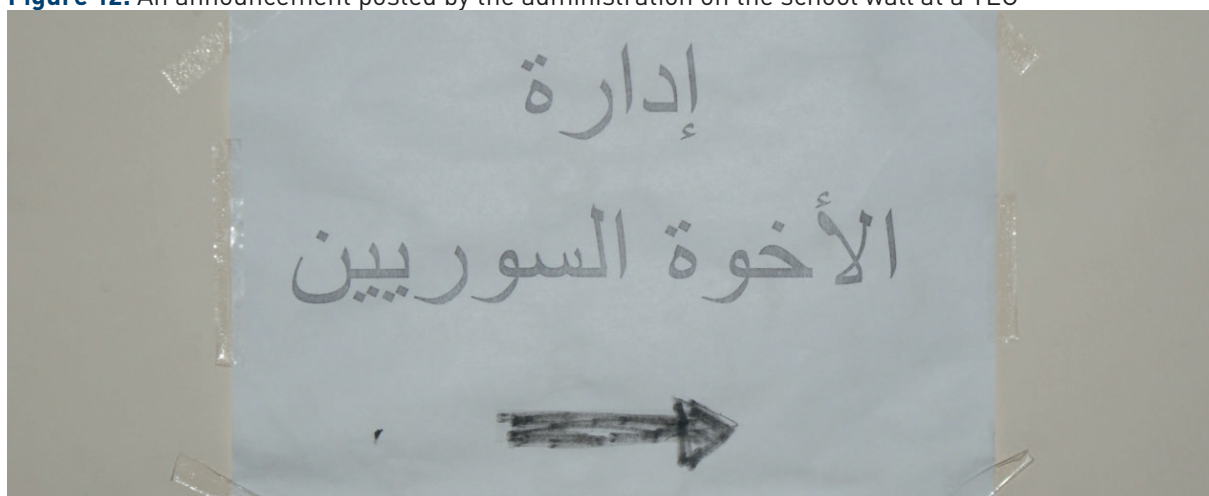 Figure 12. An announcement posted by the administration on the school wall at a TEC
إدارة
الأخوة السوريين